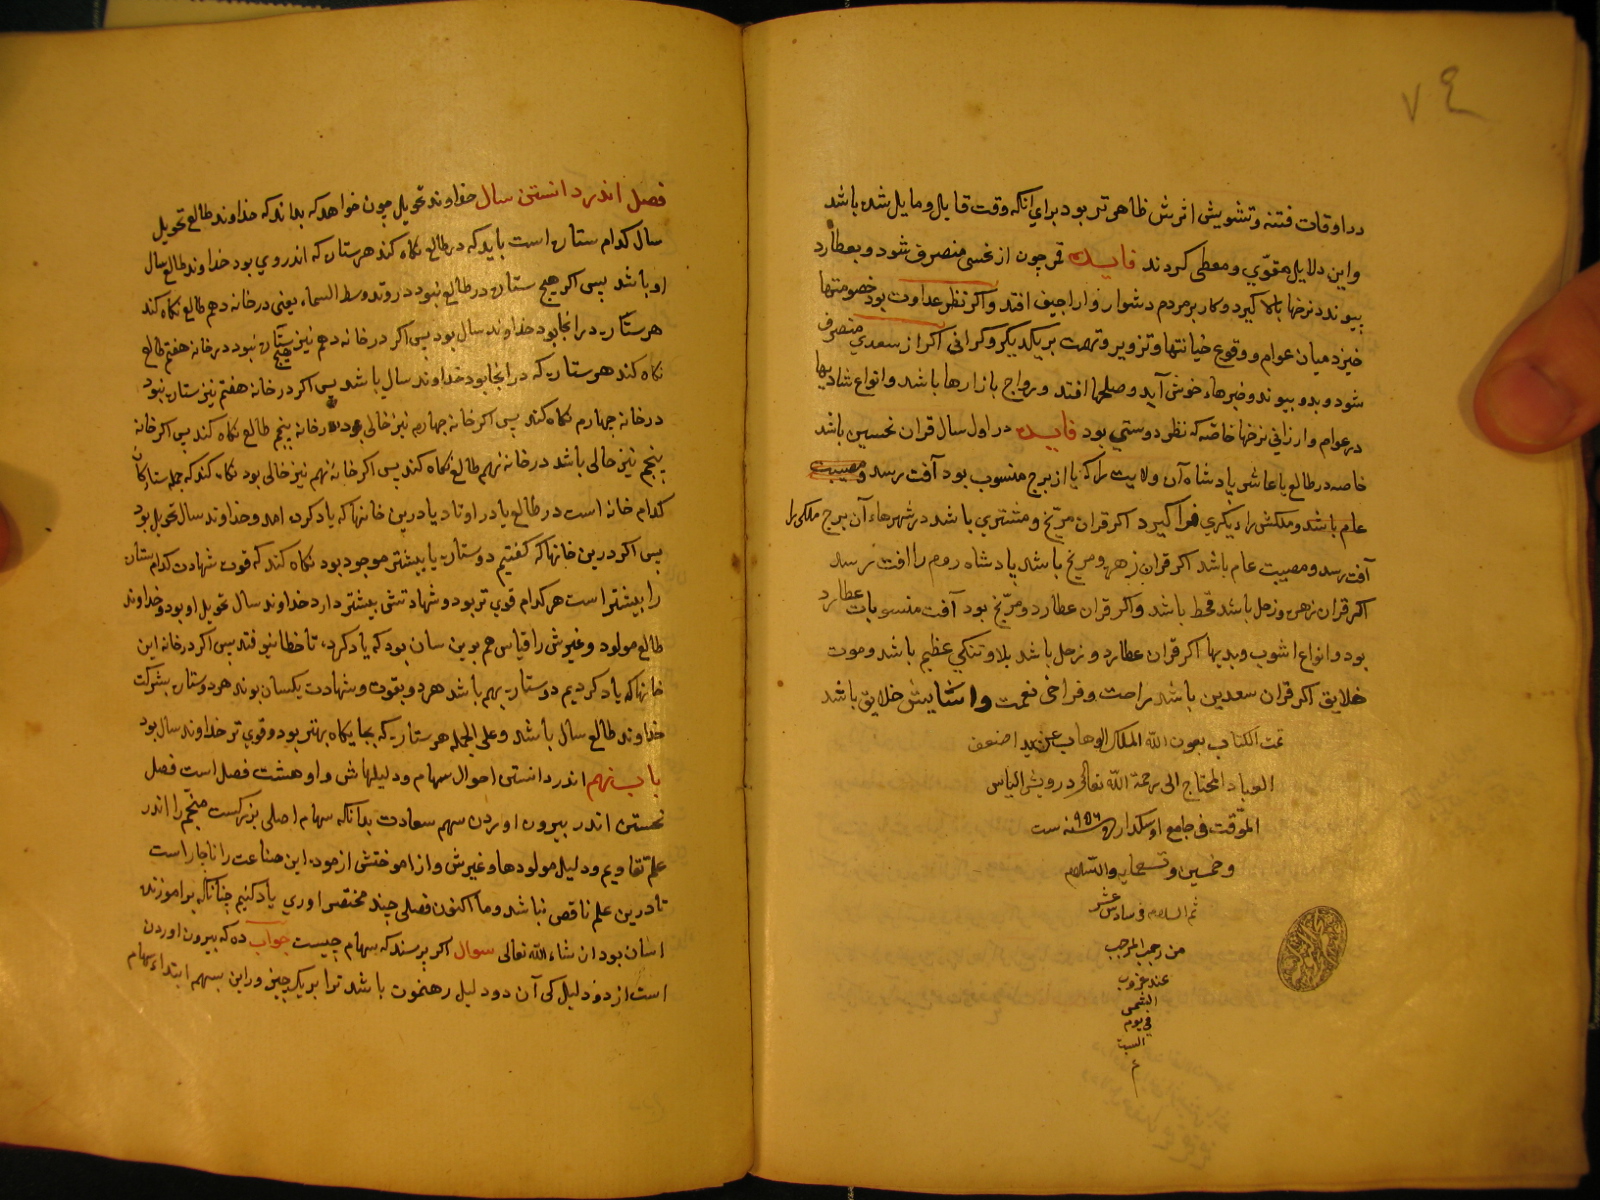 ٧٤
در اوقات فتنه و تشویش اثرش ظاهرتر بود برای آنکه وقت قابل و مایل شده باشد
و این دلایل مقوّی و معطی کردند فایده قمر چون از نحسی منصرف شود و بعطارد
پیوندد نرخها بالا کیرد و کار بر مردم دشوار و اراجیف افتد و اکر نظر عداوت بود خصومتها
خیزد میان عوام و وقوع خیانتها و تزویر و تهمت بر یکدیکر و کرانی اکر از سعدی منصرف
شود و بدو پیوندد خبرهاء خوش آید و صلحها افتد و رواج بازارها باشد و انواع شادیها
در عوام و ارزانی نرخها خاصّه که نظر دوستی بود فایده در اول سال قران نحسین باشد
خاصه در طالع یا عاشر پادشاه آن ولایت را که با آن برج منسوب بود آفت رسد و مصیبت
عام باشد و ملکش را دیکری فرا کیرد اکر قران مریّخ و مشتری باشد در شهرهاء آن برج ملکی را
آفت رسد و مصیبت عام باشد اکر قران زهره و مریخ باشد پادشاه روم را آفت رسد
اکر قران زهره و زحل باشد قحط باشد و اکر قران عطارد و مریّخ بود آفت منسوبات عطارد
بود و انواع اشوب و بدیها اکر قران عطارد و زحل باشد بلا و تنکی عظیم باشد و موت
خلایق اکر قران سعدین باشد راحت و فراخی نعمت و اسایش خلایق باشد
تمت الکتاب بعون الله الملک الوهاب عن ید اضعف
العباد المحتاج الی رحمة الله تعالی درویش الیاس
الموّقت فی جامع اوسکدار ٩٥٦ سنه ست
و خمسین و تسعمایه والسّلام
تم السلام فی سادس عشر
من رجب المرجب
عند غروب
الشمس
فی یوم
السبت
م
فصل اندر دانستن سال خداوند تحویل چون خواهد که بداند که خداوند طالع تحویل
سال کدام ستاره است باید که در طالع نکاه کند هر ستاره که اندر وی بود خداوند طالع سال
او باشد پس اکر هیچ ستاره در طالع نبود در وتد وسط السماء یعنی در خانه دهم طالع نکاه کند
هر ستاره در انجا بود خداوند سال بود پس اکر در خانه دهم نیز هیچ ستاره نبود در خانه هفتم طالع
نکاه کند هر ستاره که در انجا بود خداوند سال باشد پس اکر در خانه هفتم نیز ستاره نبود
در خانه چهارم نکاه کند پس اکر خانه چهارم نیز خالی بود در خانه پنجم طالع نکاه کند پس اکر خانه
پنجم نیز خالی باشد در خانه نهم طالع نکاه کند پس اکر خانه نهم نیز خالی بود نکاه کند که جمله ستارکان
کدام خانه است در طالع یا در اوتاد یا درین خانها که یاد کرده امد و خداوند سال تحویل بود
پس اکر درین خانها که کفتیم دو ستاره یا بیشتر موجود بود نکاه کند که قوت شهادت کدام ستاره
را بیشتر است هر کدام قوی تر بود و شهادتش بیشتر دارد خداوند سال تحویل او بود و خداوند
طالع مولود و غیرش را قیاس هم برین سان بود که یاد کرده تا خطا نیوفتد پس اکر در خانه این
خانها که یاد کردیم دو ستاره بهم باشد هر دو بقوت و شهادت یکسان بوند هر دو ستاره بشرکت
خداوند طالع سال باشد و علی الجمله هر ستاره که بجایکاه بهتر بود و قوی تر خداوند سال بود
باب نهم اندر دانستن احوال سهام و دلیلهاش و او هشت فصل است فصل
نخستین اندر بیرون اوردن سهم سعادت بدانکه سهام اصلی بزرکست منجّم را اندر
علم تقاویم و دلیل مولودها و غیرش و از اموختش ازموده این صناعت را ناچار است
تا درین علم ناقص نباشد و ما اکنون فصلی چند مختصر اوری یاد کنیم چنانکه بر اموزنده
اسان بود ان شاء الله تعالی سوال اکر پرسند که سهام چیست جواب ده که بیرون اوردن
است از دو دلیل کی آن دو دلیل رهنموت باشد ترا بر یک چیز و راین سهم ابتداء سهام